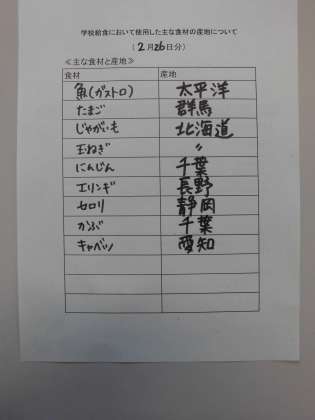 学校給食において使用した主な食材の産地について
(2月26日分)
≪主な食材と産地≫
食材 産地
魚(ガストロ) 太平洋
たまご 群馬
じゃがいも 北海道
玉ねぎ 〃
にんじん 千葉
エリンギ 長野
セロリ 静岡
かぶ 千葉
キャベツ 愛知